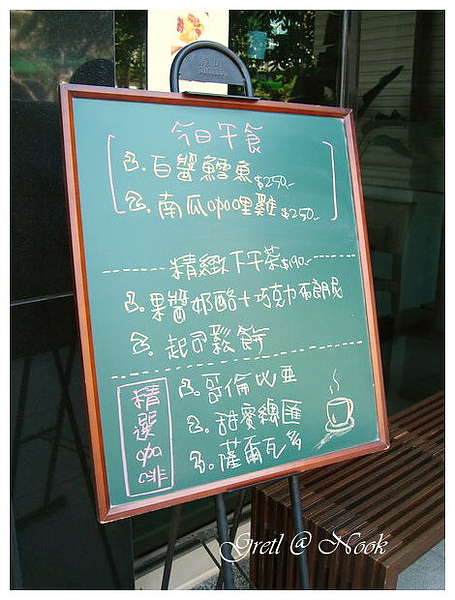 今日午食
1. 白醬鱈魚 $250.-
2. 南瓜咖哩雞 $250.-
精緻下午茶 $190.-
1. 果醬奶酪+巧克力布朗尼
2. 起司鬆餅
精選咖啡
1. 哥倫比亞
2. 甜蜜總匯
3. 薩爾瓦多
Gretl @ Nook